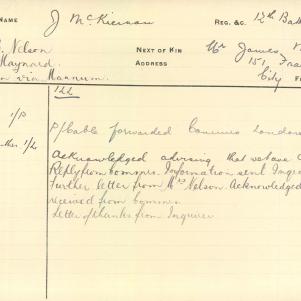 NAME J McKiernan REG. &C. 12th Bat
Nelson NEXT OF KIN Mr James
Maynard ADDRESS 151
via Mannum. City
122
1/P P/Cable forwarded Commrs London
1/2 Acknowledged advising that we have
Reply from Commrs. Information sent
Further letter from Mrs Nelson. Acknowledged
received from Commrs
Letter of thanks from Inquirer